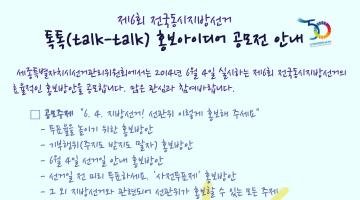 제6회 전국동시지방선거
톡톡(talk-talk) 홍보아이디어 공모전 안내
세종특별자치시선거관리위원회에서는 2014년 6월 4일 실시하는 제6회 전국동시지방선거의
효율적인 홍보방안을 공모합니다. 많은 관심과 참여바랍니다.
□ 공모주제 "6. 4. 지방선거! 선관위 이렇게 홍보해 주세요"
- 투표율을 높이기 위한 홍보방안
- 기부행위(주지도 받지도 말자) 홍보방안
- 6월 4일 선거일 안내 홍보방안
- 선거일 전 미리 투표하세요. '사전투표제' 홍보방안
- 그 외 지방선거와 관련되어 선관위가 홍보할 수 있는 모든 주제